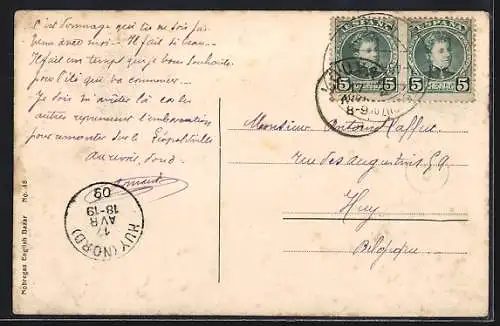 C'est dommage que tu ne sois pas
venu avec moi - Il fait si beau -
Il fait un temps que je vous souhaite
pour l'été qui va commencer -
Je vais m'arrêter là car les
autres reprennent l'embarcation
pour remonter sur le Léopoldville
Au revoir, tout
ESPAÑA ESPAÑA
5 5 5 5
8-9
Monsieur Antoine
rue des Augustins 59
Huy
Belgique
HUY (NORD)
17
AVR
18-19
09
Nobregas English Bazar No. 48